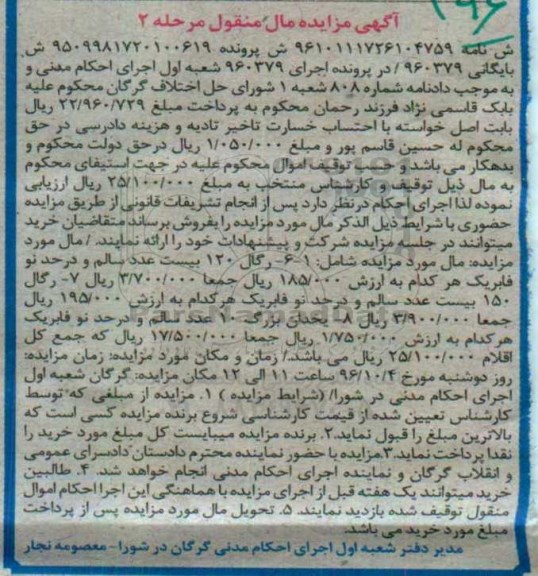 ۱۹۶
آگهی مزایده مال منقول مرحله ۲
ش نامه ۹۶۱۰۱۱۱۷۲۶۱۰۴۷۵۹ ش پرونده ۹۵۰۹۹۸۱۷۲۰۱۰۰۶۱۹ ش
بایگانی ۹۶۰۳۷۹ / در پرونده اجرای ۹۶۰۳۷۹ شعبه اول اجرای احکام مدنی و
به موجب دادنامه شماره ۸۰۸ شعبه ۱ شورای حل اختلاف گرگان محکوم علیه
بابک قاسمی نژاد فرزند رحمان محکوم به پرداخت مبلغ ۲۲/۹۶۰/۷۲۹ ریال
بابت اصل خواسته با احتساب خسارت تاخیر تادیه و هزینه دادرسی در حق
محکوم له حسین قاسم پور و مبلغ ۱/۰۵۰/۰۰۰ ریال درحق دولت محکوم و
بدهکار می باشد و حسب توقیف اموال محکوم علیه در جهت استیفای محکوم
به مال ذیل توقیف و کارشناس منتخب به مبلغ ۲۵/۱۰۰/۰۰۰ ریال ارزیابی
نموده لذا اجرای احکام درنظر دارد پس از انجام تشریفات قانونی از طریق مزایده
حضوری با شرایط ذیل الذکر مال مورد مزایده را بفروش برساند متقاضیان خرید
میتوانند در جلسه مزایده شرکت و پیشنهادات خود را ارائه نمایند. / مال مورد
مزایده: مال مورد مزایده شامل: ۱-۶- رگال ۱۲۰ بیست عدد سالم و درحد نو
فابریک هر کدام به ارزش ۱۸۵/۰۰۰ ریال جمعا ۳/۷۰۰/۰۰۰ ریال ۷- رگال
۱۵۰ بیست عدد سالم و درحد نو فابریک هرکدام به ارزش ۱۹۵/۰۰۰ ریال
جمعا ۳/۹۰۰/۰۰۰ ریال ۸- یخدان بزرگ ۱۰ عدد سالم و درحد نو فابریک
هرکدام به ارزش ۱/۷۵۰/۰۰۰ ریال جمعا ۱۷/۵۰۰/۰۰۰ ریال که جمع کل
اقلام ۲۵/۱۰۰/۰۰۰ ریال می باشد./ زمان و مکان مورد مزایده: زمان مزایده:
روز دوشنبه مورخ ۹۶/۱۰/۴ ساعت ۱۱ الی ۱۲ مکان مزایده: گرگان شعبه اول
اجرای احکام مدنی در شورا/ (شرایط مزایده ) ۱. مزایده از مبلغی که توسط
کارشناس تعیین شده از قیمت کارشناسی شروع برنده مزایده کسی است که
بالاترین مبلغ را قبول نماید.۲. برنده مزایده میبایست کل مبلغ مورد خرید را
نقدا پرداخت نماید.۳.مزایده با حضور نماینده محترم دادستان دادسرای عمومی
و انقلاب گرگان و نماینده اجرای احکام مدنی انجام خواهد شد. ۴. طالبین
خرید میتوانند یک هفته قبل از اجرای مزایده با هماهنگی این اجرا احکام اموال
منقول توقیف شده بازدید نمایند. ۵. تحویل مال مورد مزایده پس از پرداخت
مبلغ مورد خرید می باشد.
مدیر دفتر شعبه اول اجرای احکام مدنی گرگان در شورا - معصومه نجار